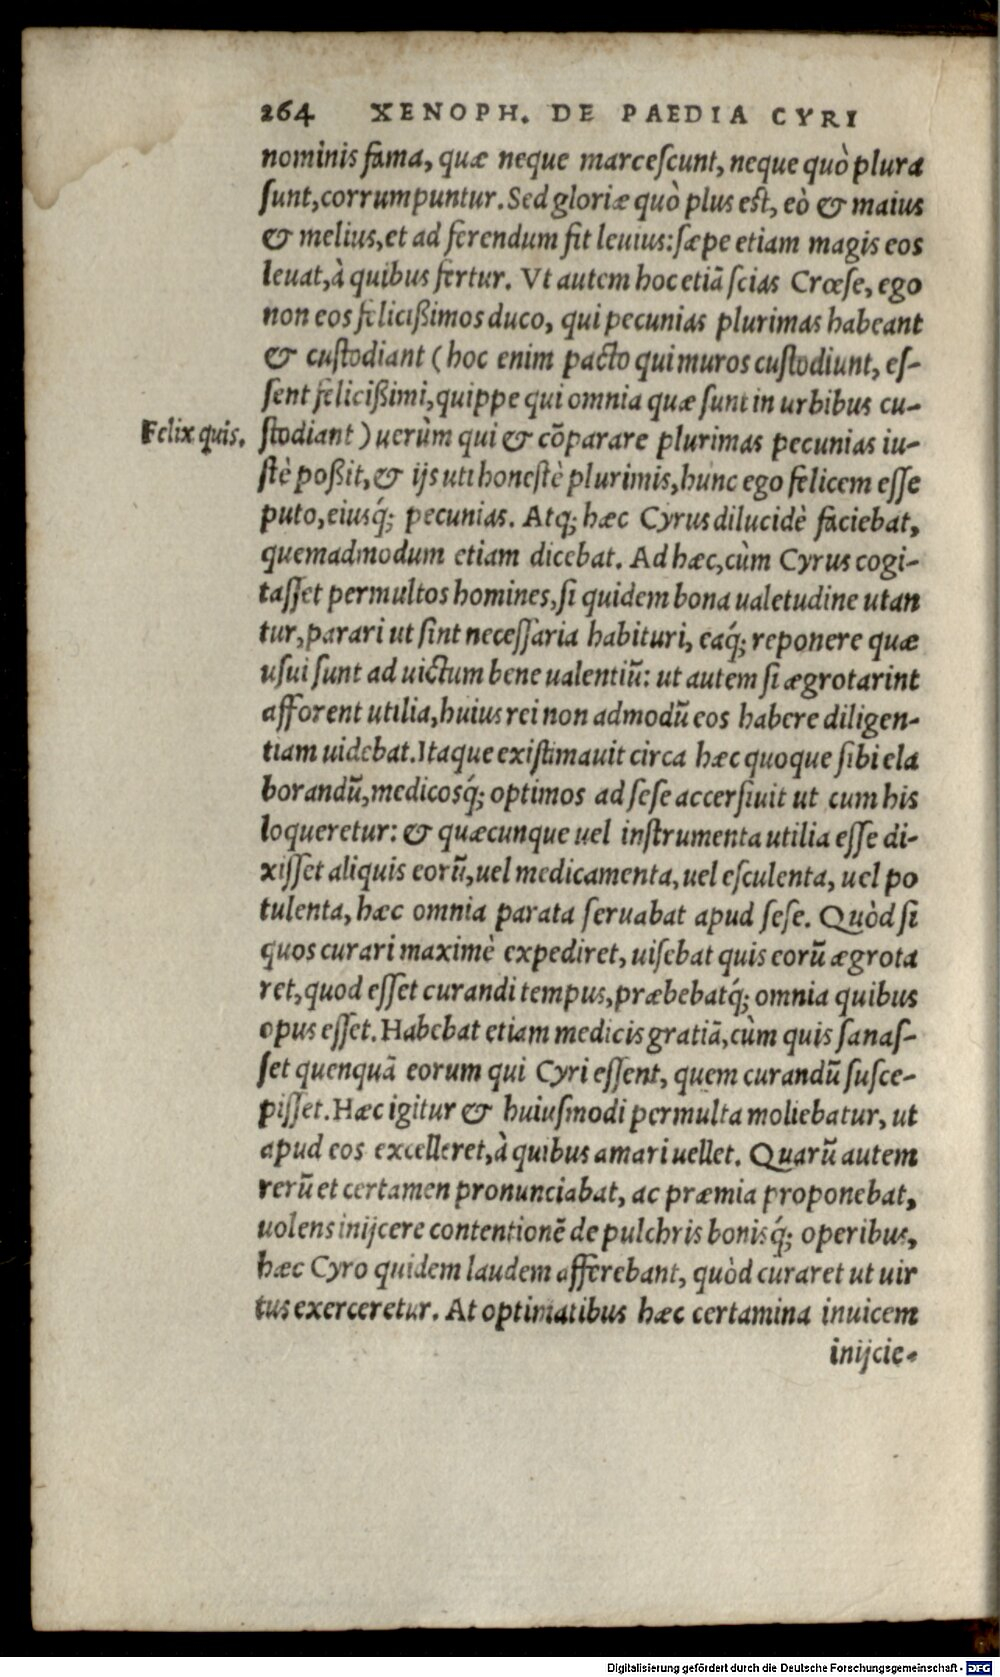 264 XENOPH. DE PAEDIA CYRI
nominis fama, quæ neque marcescunt, neque quò plura
sunt, corrumpuntur. Sed gloriæ quò plus est, eò & maius
& melius, et ad ferendum fit leuius: sæpe etiam magis eos
leuat, à quibus fertur. Vt autem hoc etiã scias Crœse, ego
non eos felicißimos duco, qui pecunias plurimas habeant
& custodiant (hoc enim pacto qui muros custodiunt, es-
sent felicißimi, quippe qui omnia quæ sunt in urbibus cu-
Felix quis.
stodiant) uerùm qui & cõparare plurimas pecunias iu-
stè poßit, & ijs uti honestè plurimis, hunc ego felicem esse
puto, eiusq́; pecunias. Atq; hæc Cyrus dilucidè faciebat,
quemadmodum etiam dicebat. Ad hæc, cùm Cyrus cogi-
tasset permultos homines, si quidem bona ualetudine utan
tur, parari ut sint necessaria habituri, eaq́; reponere quæ
usui sunt ad uictum bene ualentiũ: ut autem si ægrotarint
afforent utilia, huius rei non admodũ eos habere diligen-
tiam uidebat. Itaque existimauit circa hæc quoque sibi ela
borandũ, medicosq́; optimos ad sese accersiuit ut cum his
loqueretur: & quæcunque uel instrumenta utilia esse di-
xisset aliquis eorũ, uel medicamenta, uel esculenta, uel po
tulenta, hæc omnia parata seruabat apud sese. Quòd si
quos curari maximè expediret, uisebat quis eorũ ægrota
ret, quod esset curandi tempus, præbebatq́; omnia quibus
opus esset. Habebat etiam medicis gratiã, cùm quis sanas-
set quenquã eorum qui Cyri essent, quem curandũ susce-
pisset. Hæc igitur & huiusmodi permulta moliebatur, ut
apud eos excelleret, à quibus amari uellet. Quarũ autem
rerũ et certamen pronunciabat, ac præmia proponebat,
uolens inijcere contentionẽ de pulchris bonisq́; operibus,
hæc Cyro quidem laudem afferebant, quòd curaret ut uir
tus exerceretur. At optimatibus hæc certamina inuicem
inijcie-
Digitalisierung gefördert durch die Deutsche Forschungsgemeinschaft - DFG